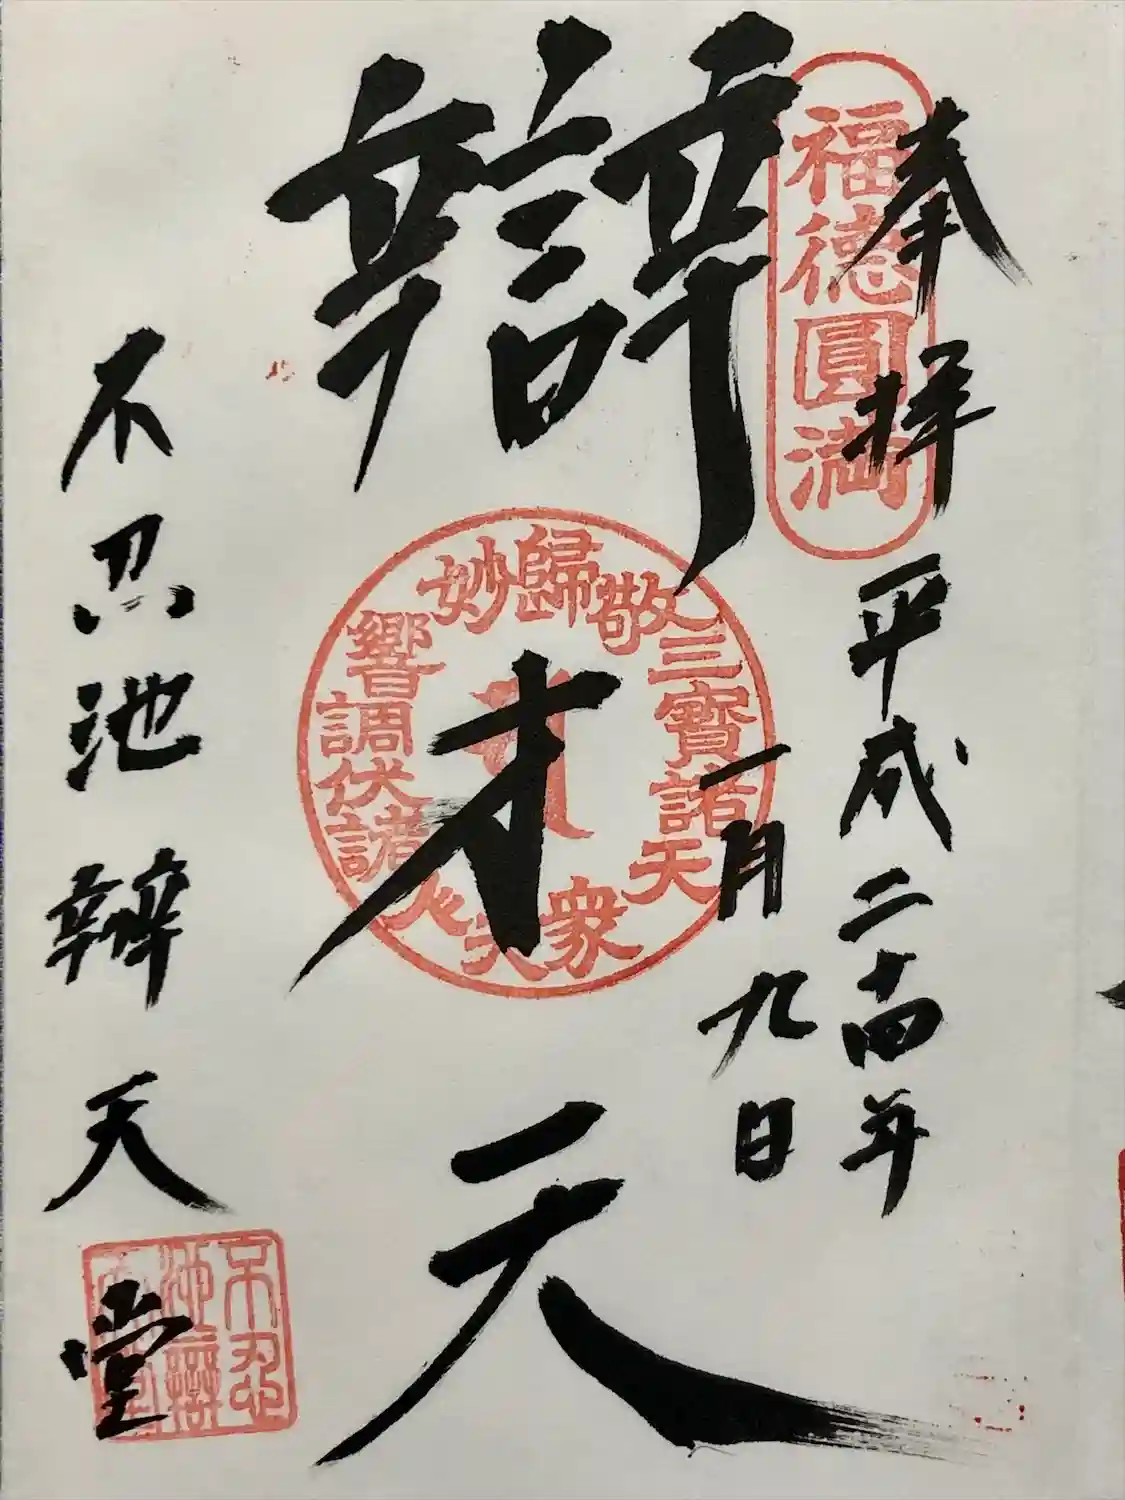 奉拝
平成二十四年
一月九日
辯才天
不忍池辯天堂
福德圓満
歸敬三寶諸天衆
妙
響調伏諸
不忍
池辯